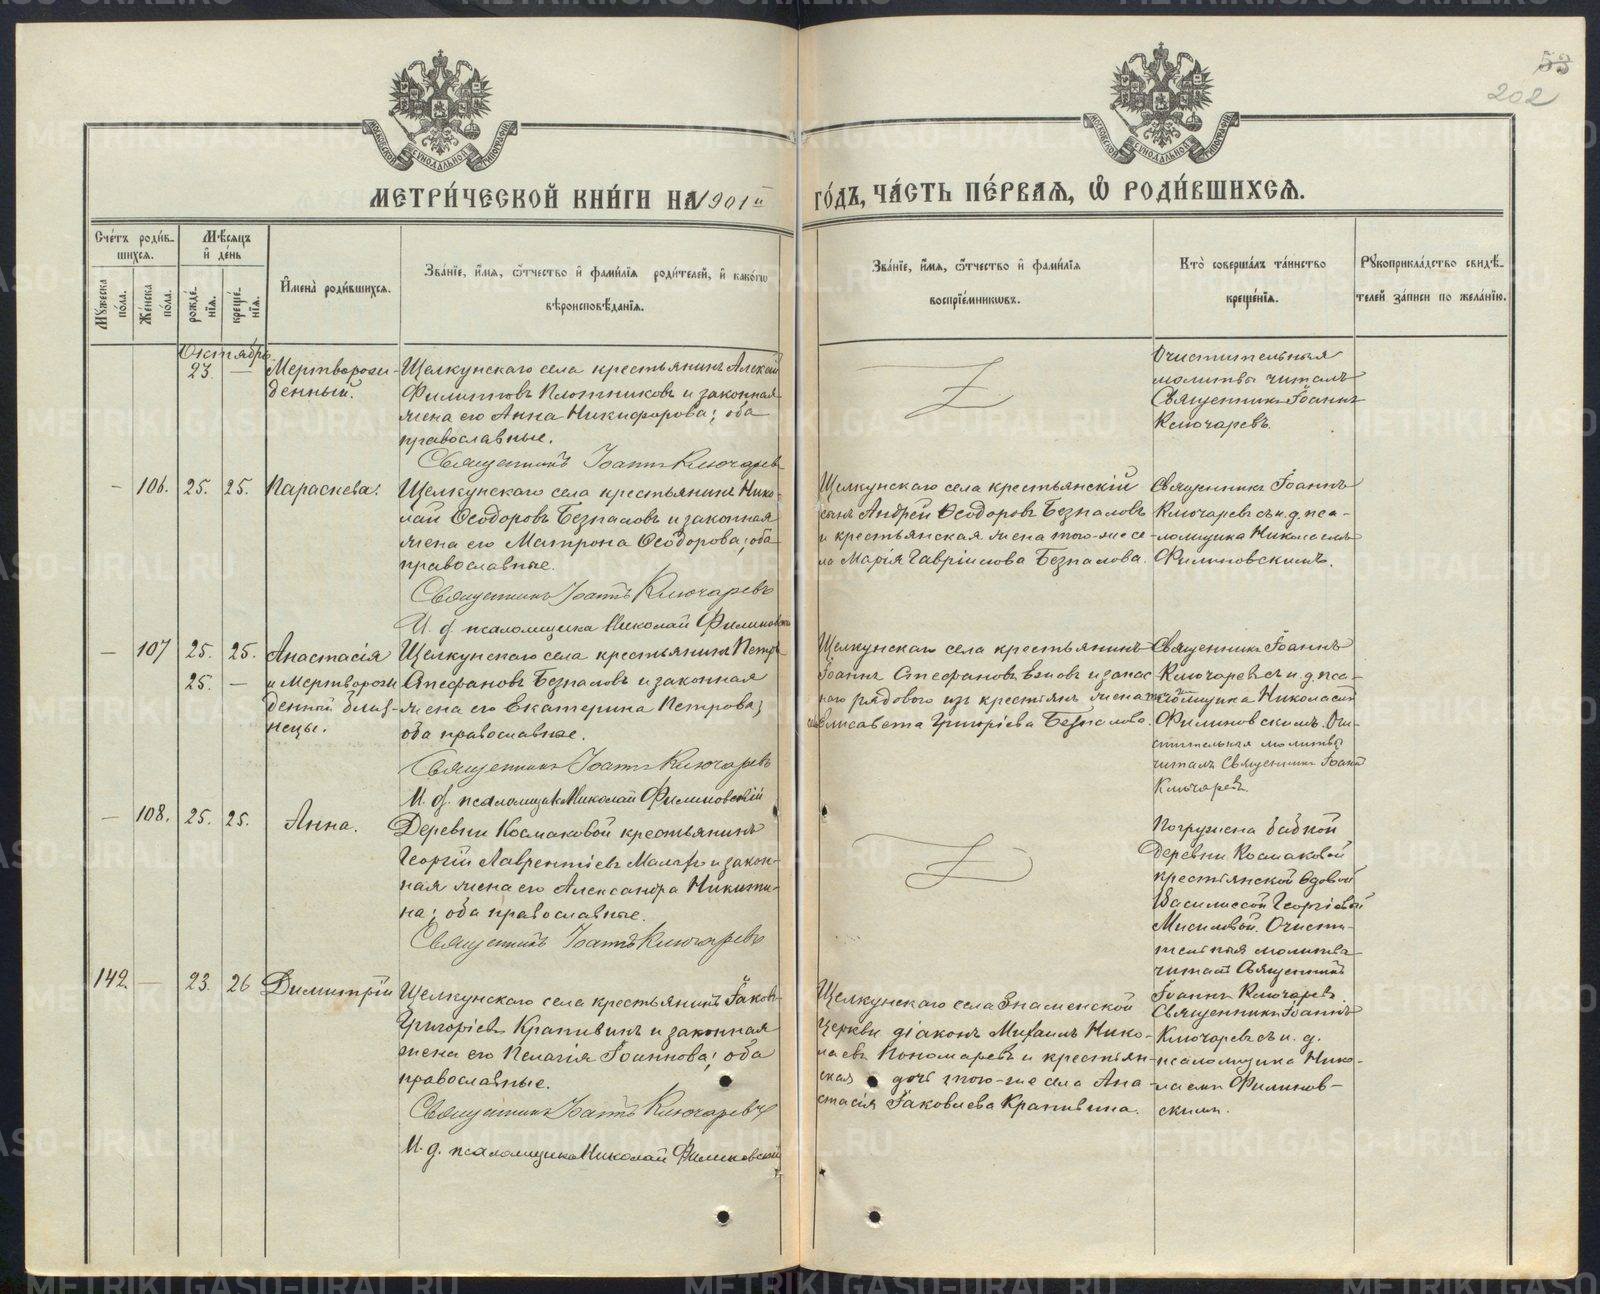 53
202
МЕТРИЧЕСКОЙ КНИГИ НА 1901й ГОДЪ, ЧАСТЬ ПЕРВАЯ, Ѡ РОДИВШИХСЯ.
Счетъ родив-
шихся.
Мѣсяцъ
и день
Мужеска
пола.
Женска
пола.
рожде-
нія.
креще-
нія.
Имена родившихся.
Званіе, имя, ѿчество и фамилія родителей, и какогѡ
вѣроисповѣданія.
Званіе, имя, ѿчество и фамилія
воспріемниковъ.
Кто совершалъ таинство
крещенія.
Рукоприкладство свидѣ-
телей записи по желанію.
Октябрь
23. —
Мертворож-
денный.
Щелкунскаго села крестьянинъ Алексій
Филипповъ Плотниковъ и законная
жена его Анна Никифорова; оба
православные.
Священникъ Іоаннъ Ключаревъ
Очистительныя
молитвы читалъ
Священникъ Іоаннъ
Ключаревъ.
— 106. 25. 25. Параскева.
Щелкунскаго села крестьянинъ Нико-
лай Ѳеодоровъ Безпаловъ и законная
жена его Матрона Ѳеодорова; оба
православные.
Священникъ Іоаннъ Ключаревъ
И. д. псаломщика Николай Филиновскій
Щелкунскаго села крестьянскій
сынъ Андрей Ѳеодоровъ Безпаловъ
и крестьянская жена того-же се-
ла Марія Гавріилова Безпалова.
Священникъ Іоаннъ
Ключаревъ съ и. д. пса-
ломщика Николаемъ
Филиновскимъ.
— 107 25. 25. Анастасія
25. — и Мертворож
денный близ-
нецы.
Щелкунскаго села крестьянинъ Петръ
Стефановъ Безпаловъ и законная
жена его Екатерина Петрова;
оба православные.
Священникъ Іоаннъ Ключаревъ
И. д. псаломщика Николай Филиновскій
Щелкунскаго села крестьянинъ
Іоаннъ Стефановъ и запас
наго рядового изъ крестьянъ жена
Елисавета Григоріева Безпалова.
Священникъ Іоаннъ
Ключаревъ съ и. д. пса-
ломщика Николаемъ
Филиновскимъ. Очи-
стительныя молитвы
читалъ Священникъ Іоаннъ
Ключаревъ.
— 108. 25. 25. Анна.
Деревни Космаковой крестьянинъ
Георгій Лаврентіевъ и закон-
ная жена его Александра Никити-
на; оба православные.
Священникъ Іоаннъ Ключаревъ
Погружена бабкой
Деревни Космаковой
крестьянской вдовой
Василиссой Георгіевой
Мисиловой. Очисти-
тельныя молитвы
читалъ Священникъ
Іоаннъ Ключаревъ.
142 — 23. 26 Димитрій
Щелкунскаго села крестьянинъ Іаковъ
Григоріевъ Крапивинъ и законная
жена его Пелагія Іоаннова; оба
православные.
Священникъ Іоаннъ Ключаревъ
И. д. псаломщика Николай Филиновскій
Щелкунскаго села Знаменской
церкви діаконъ Михаилъ Нико-
лаевъ Пономаревъ и крестьян-
ская дочь того-же села Ана-
стасія Іаковлева Крапивина.
Священникъ Іоаннъ
Ключаревъ съ и. д.
псаломщика Нико-
лаемъ Филинов-
скимъ.
METRIKI.GASO-URAL.RU